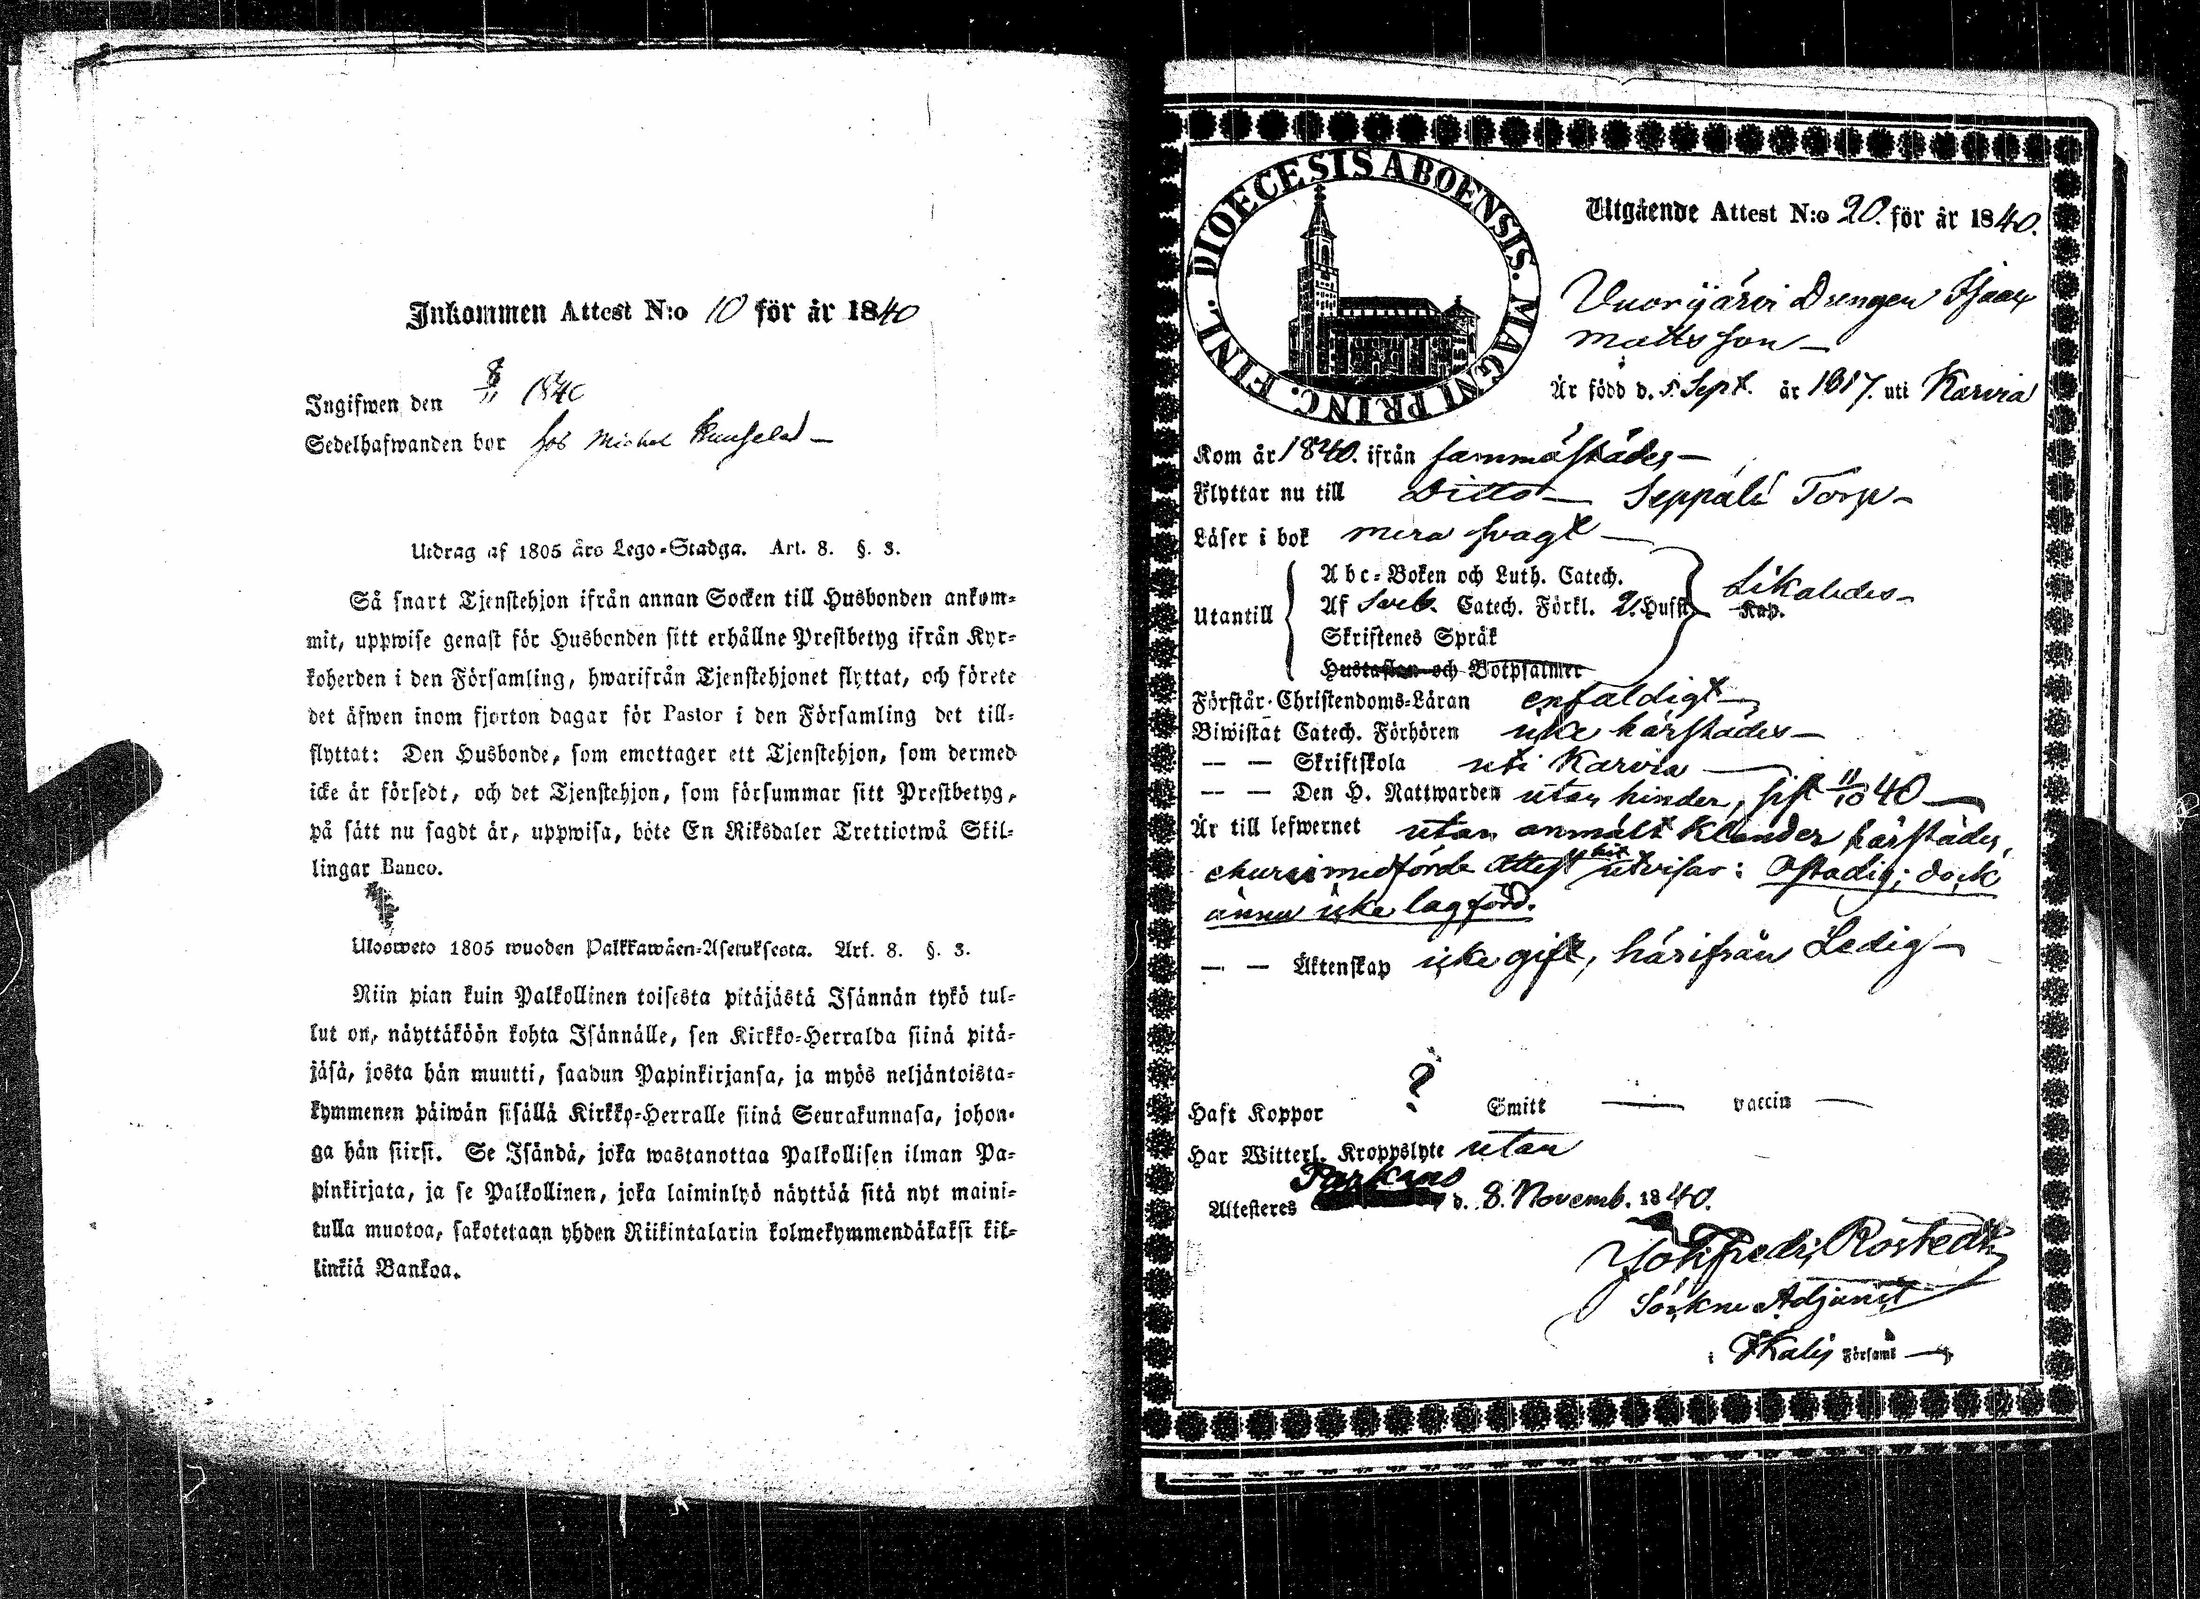 Inkommen Attest N:o 10 för år 1840
Ingifwen den 8/11 1840
Sedelhafwanden bor hos Michel
Utdrag af 1805 års Lego-Stadga. Art. 8. §. 3.
Så snart Tjenstehjon ifrån annan Socken till Husbonden ankom-
mit, uppwise genast för Husbonden sitt erhållne Prestbetyg ifrån Kyr-
koherden i den Församling, hwarifrån Tjenstehjonet flyttat, och förete
det äfwen inom fjorton dagar för Pastor i den Församling det till-
flyttat: Den Husbonde, som emottager ett Tjenstehjon, som dermed
icke är försedt, och det Tjenstehjon, som försummar sitt Prestbetyg,
på sätt nu sagdt är, uppwisa, böte En Riksdaler Trettiotwå Skil-
lingar Banco.
Ulosweto 1805 wuoden Palkkawäen-Asetuksesta. Art. 8. §. 3.
Niin pian kuin Palkollinen toisesta pitäjästä Isännän tykö tul-
lut on, näyttäköön kohta Isännälle, sen Kirkko-Herralda siinä pitä-
jäsä, josta hän muutti, saadun Papinkirjansa, ja myös neljäntoista-
kymmenen päiwän sisällä Kirkko-Herralle siinä Seurakunnasa, johon-
ga hän siirsi. Se Isändä, joka wastanottaa Palkollisen ilman Pa-
pinkirjata, ja se Palkollinen, joka laiminlyö näyttää sitä nyt maini-
tulla muotoa, sakotetaan yhden Riikintalarin kolmekymmendäkaksi kil-
linkiä Bankoa.
DIOECESIS ABOENSIS. MAGNI PRINC. FINL.
Utgående Attest N:o 20. för år 1840.
Vuorijärvi Drengen Isaac
Mattsson
Är född d. 5 Sept. år 1817. uti Karvia
Kom år 1840. ifrån sammastädes
Flyttar nu till Ditto Seppälä Torp
Läser i bok mera svagt
Utantill
Abc-Boken och Luth. Catech.
Af Sveb. Catech. Förkl. 2. Hufst. Kap.
Likaledes
Skriftenes Språk
Hustaflan och Botpsalmer
Förstår Christendoms-Läran enfaldigt
Biwistat Catech. Förhören icke härstädes
— — Skriftskola uti Karvia
— — Den H. Nattwarden utan hinder, sist 11/10 40
Är till lefwernet utan anmält klander härstädes,
medförde Attest hit utvisar: Ostadig; dock
ännu icke lagförd.
— — Äktenskap icke gift, härifrån Ledig
Haft Koppor ? Smitt — vaccin —
Har Witterl. Kroppslyte utan
Attesteres Parkano d. 8. Novemb. 1840.
Joh Fredr Rostedt
Sockne Adjunct
i Ikalis Församl